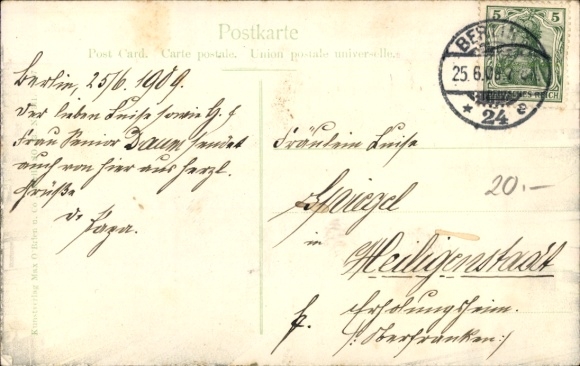 Postkarte
Post Card. Carte postale. Union postale universelle.
Berlin, 25/6. 1909.
Der lieben Luise sowie
Frau Senior Daum sendet
auch von hier aus herzl.
Grüße
d. Papa.
Fräulein Luise
Spiegel
in
Heiligenstadt
Erholungsheim.
/: Oberfranken :/
20.-
5 5
DEUTSCHES REICH
BERLIN
25.6.09.
* 24 e
Kunstverlag Max O'Brien u. Co